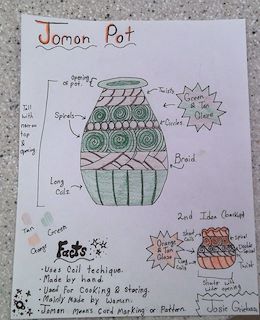 Jomon Pot
Opening
of pot.
Twists
Green & Tan
Glaze
Tall
with
narrow
top
&
opening
Spirals
Circles
Braid
Long
Coils
Tan
Green
Orange
2nd Idea (backup)
Facts
Orange &
Tan
Glaze
Short
Coils
Spiral
Double
Twist
Long
Coils
Shorter with
wider opening
• Uses Coil techique.
• Made by hand.
• Used For Cooking & Storing.
• Mainly Made by Women.
• Jomon Means Cord Marking or Pattern.
Josie